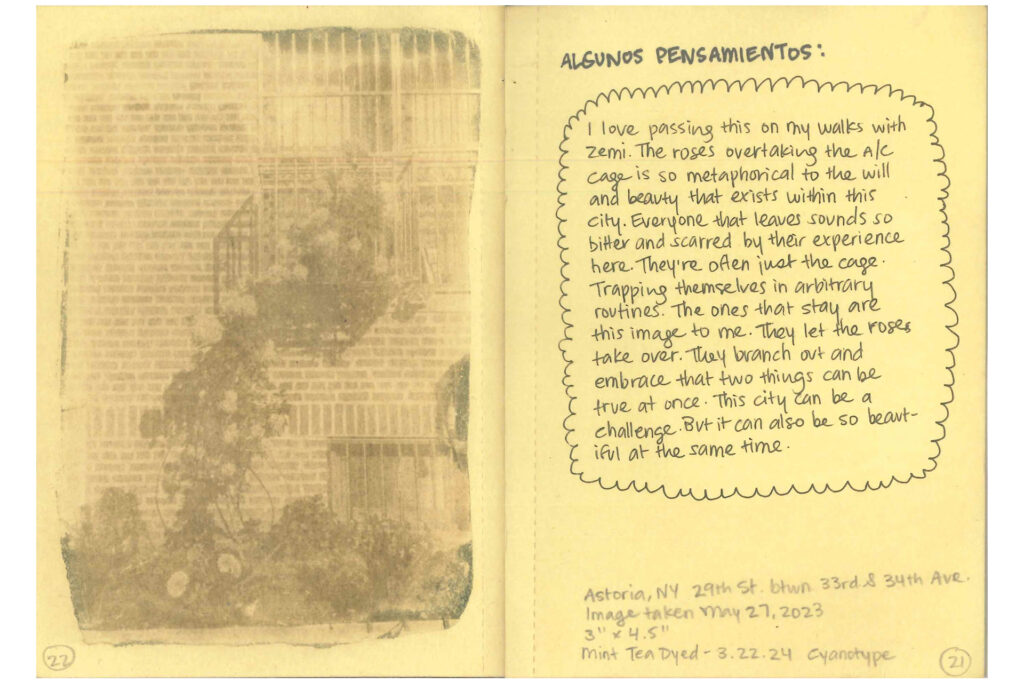 ALGUNOS PENSAMIENTOS:
I love passing this on my walks with
Zemi. The roses overtaking the A/C
cage is so metaphorical to the will
and beauty that exists within this
city. Everyone that leaves sounds so
bitter and scarred by their experience
here. They're often just the cage.
Trapping themselves in arbitrary
routines. The ones that stay are
this image to me. They let the roses
take over. They branch out and
embrace that two things can be
true at once. This city can be a
challenge. But it can also be so beaut-
iful at the same time.
Astoria, NY 29th St. btwn 33rd & 34th Ave.
Image taken May 27, 2023
3" x 4.5"
Mint Tea Dyed - 3.22.24 Cyanotype
22
21